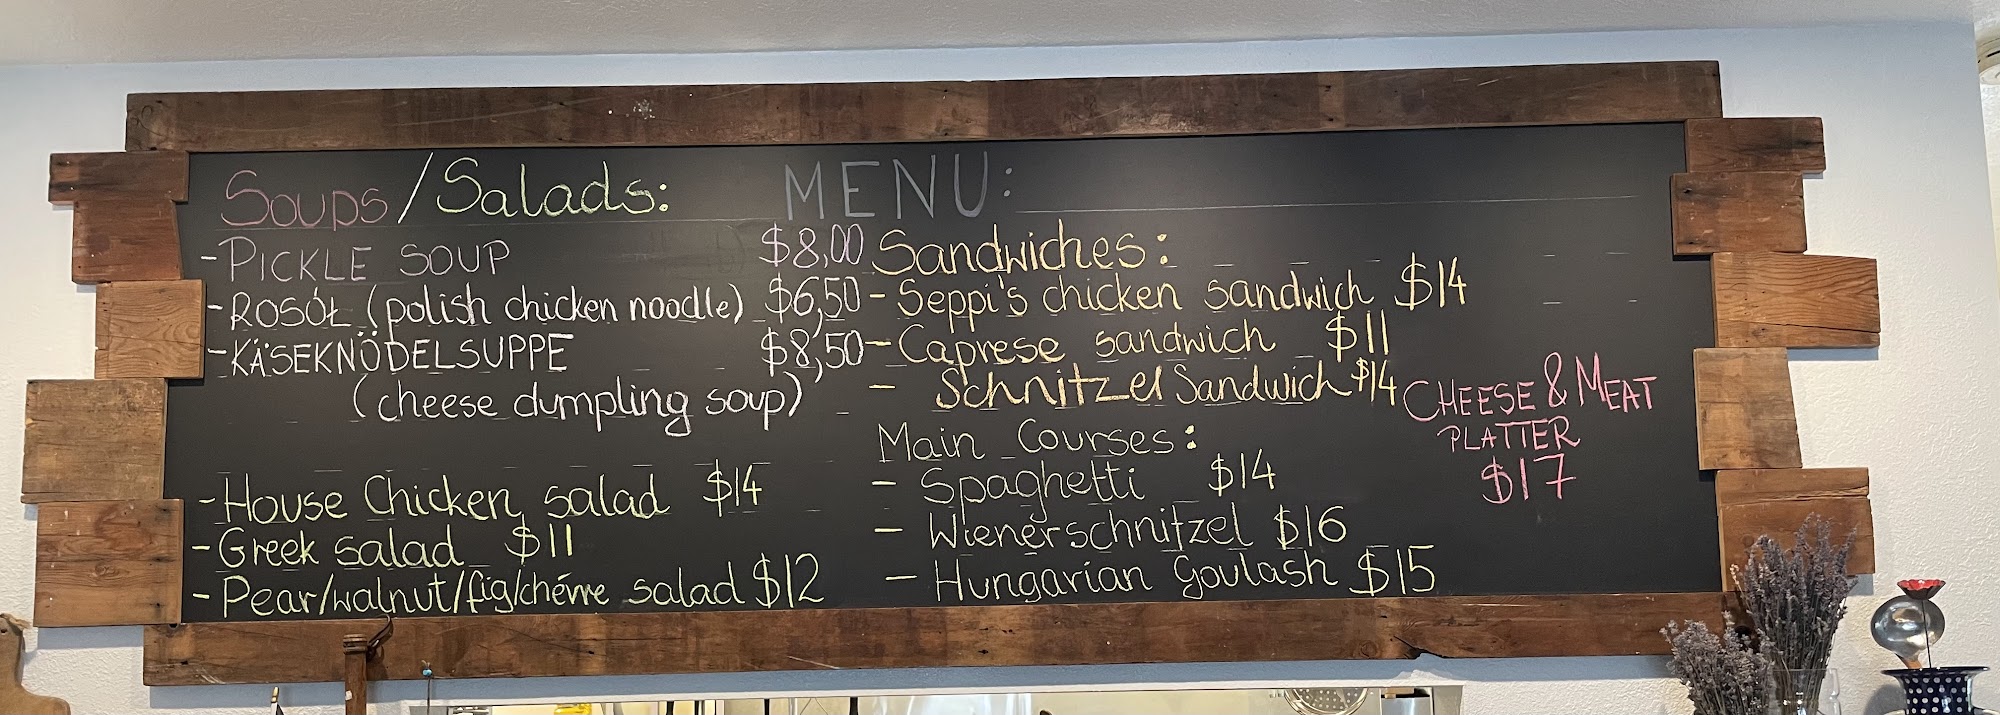 MENU:
Soups/Salads:
- PICKLE SOUP $8,00
- ROSÓŁ (polish chicken noodle) $6,50
- KÄSEKNÖDELSUPPE $8,50
(cheese dumpling soup)
- House Chicken salad $14
- Greek salad $11
- Pear/walnut/fig/chévre salad $12
Sandwiches:
- Seppi's chicken sandwich $14
- Caprese sandwich $11
- Schnitzel Sandwich $14
Main Courses:
- Spaghetti $14
- Wienerschnitzel $16
- Hungarian Goulash $15
CHEESE & MEAT
PLATTER
$17